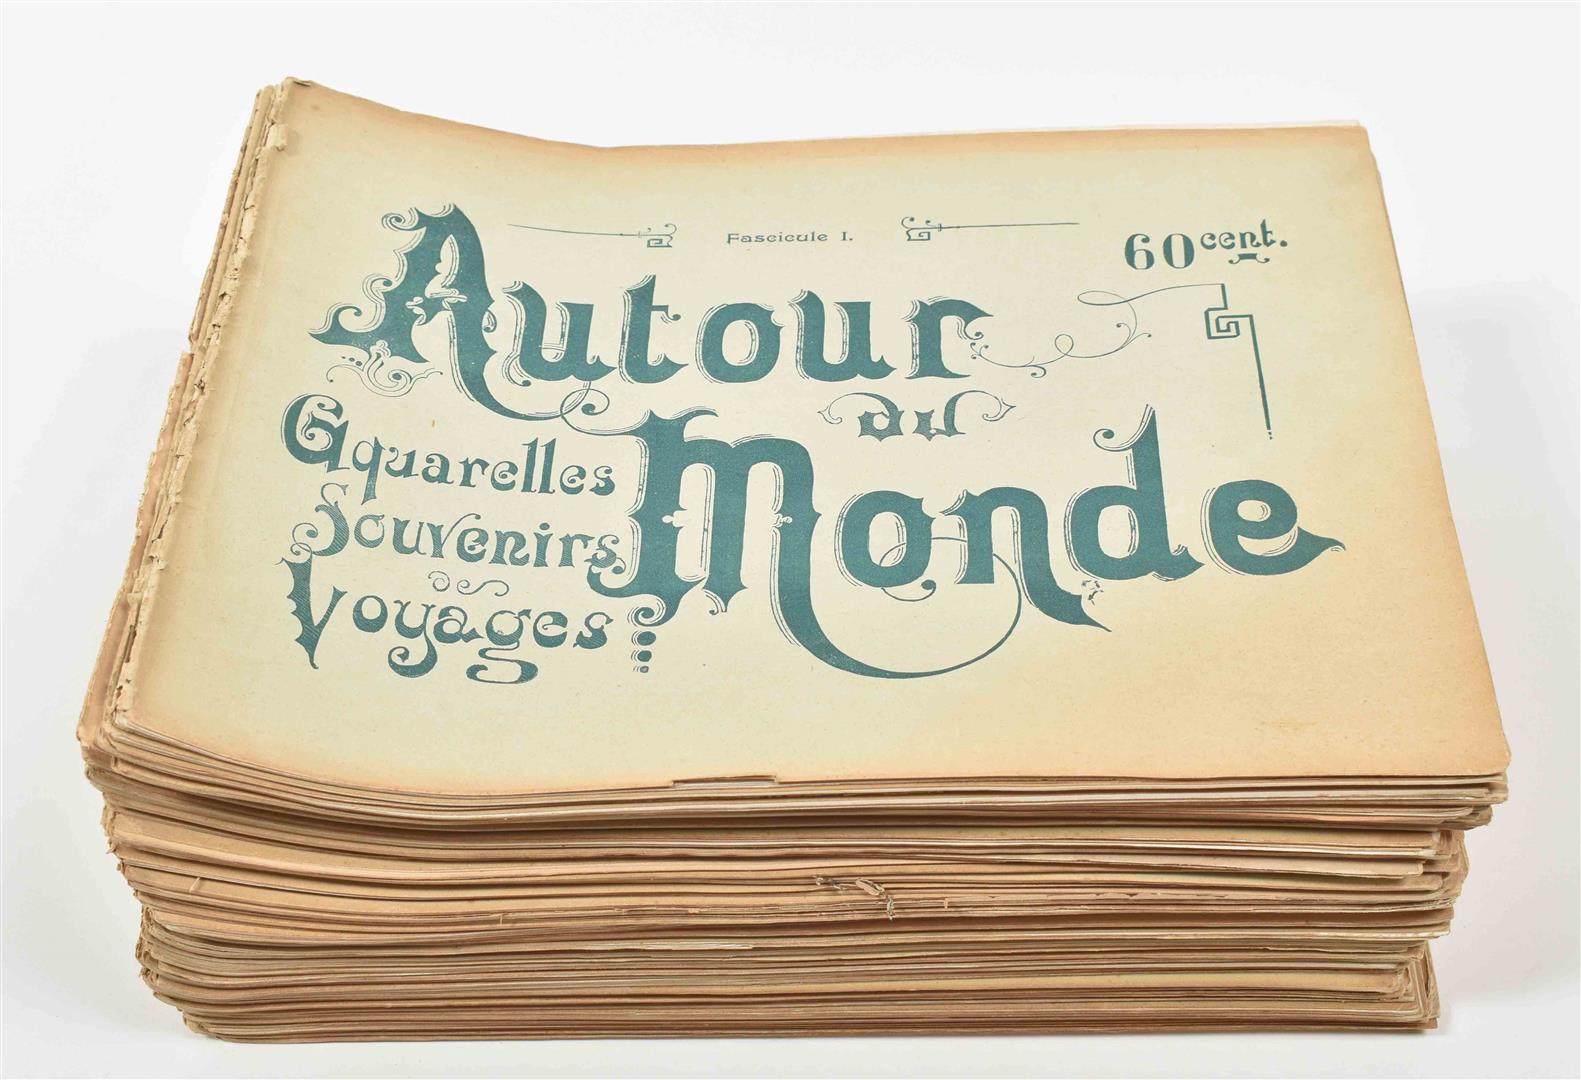 Fascicule I.
60 cent.
Autour
du
Monde
Aquarelles
Souvenirs
Voyages